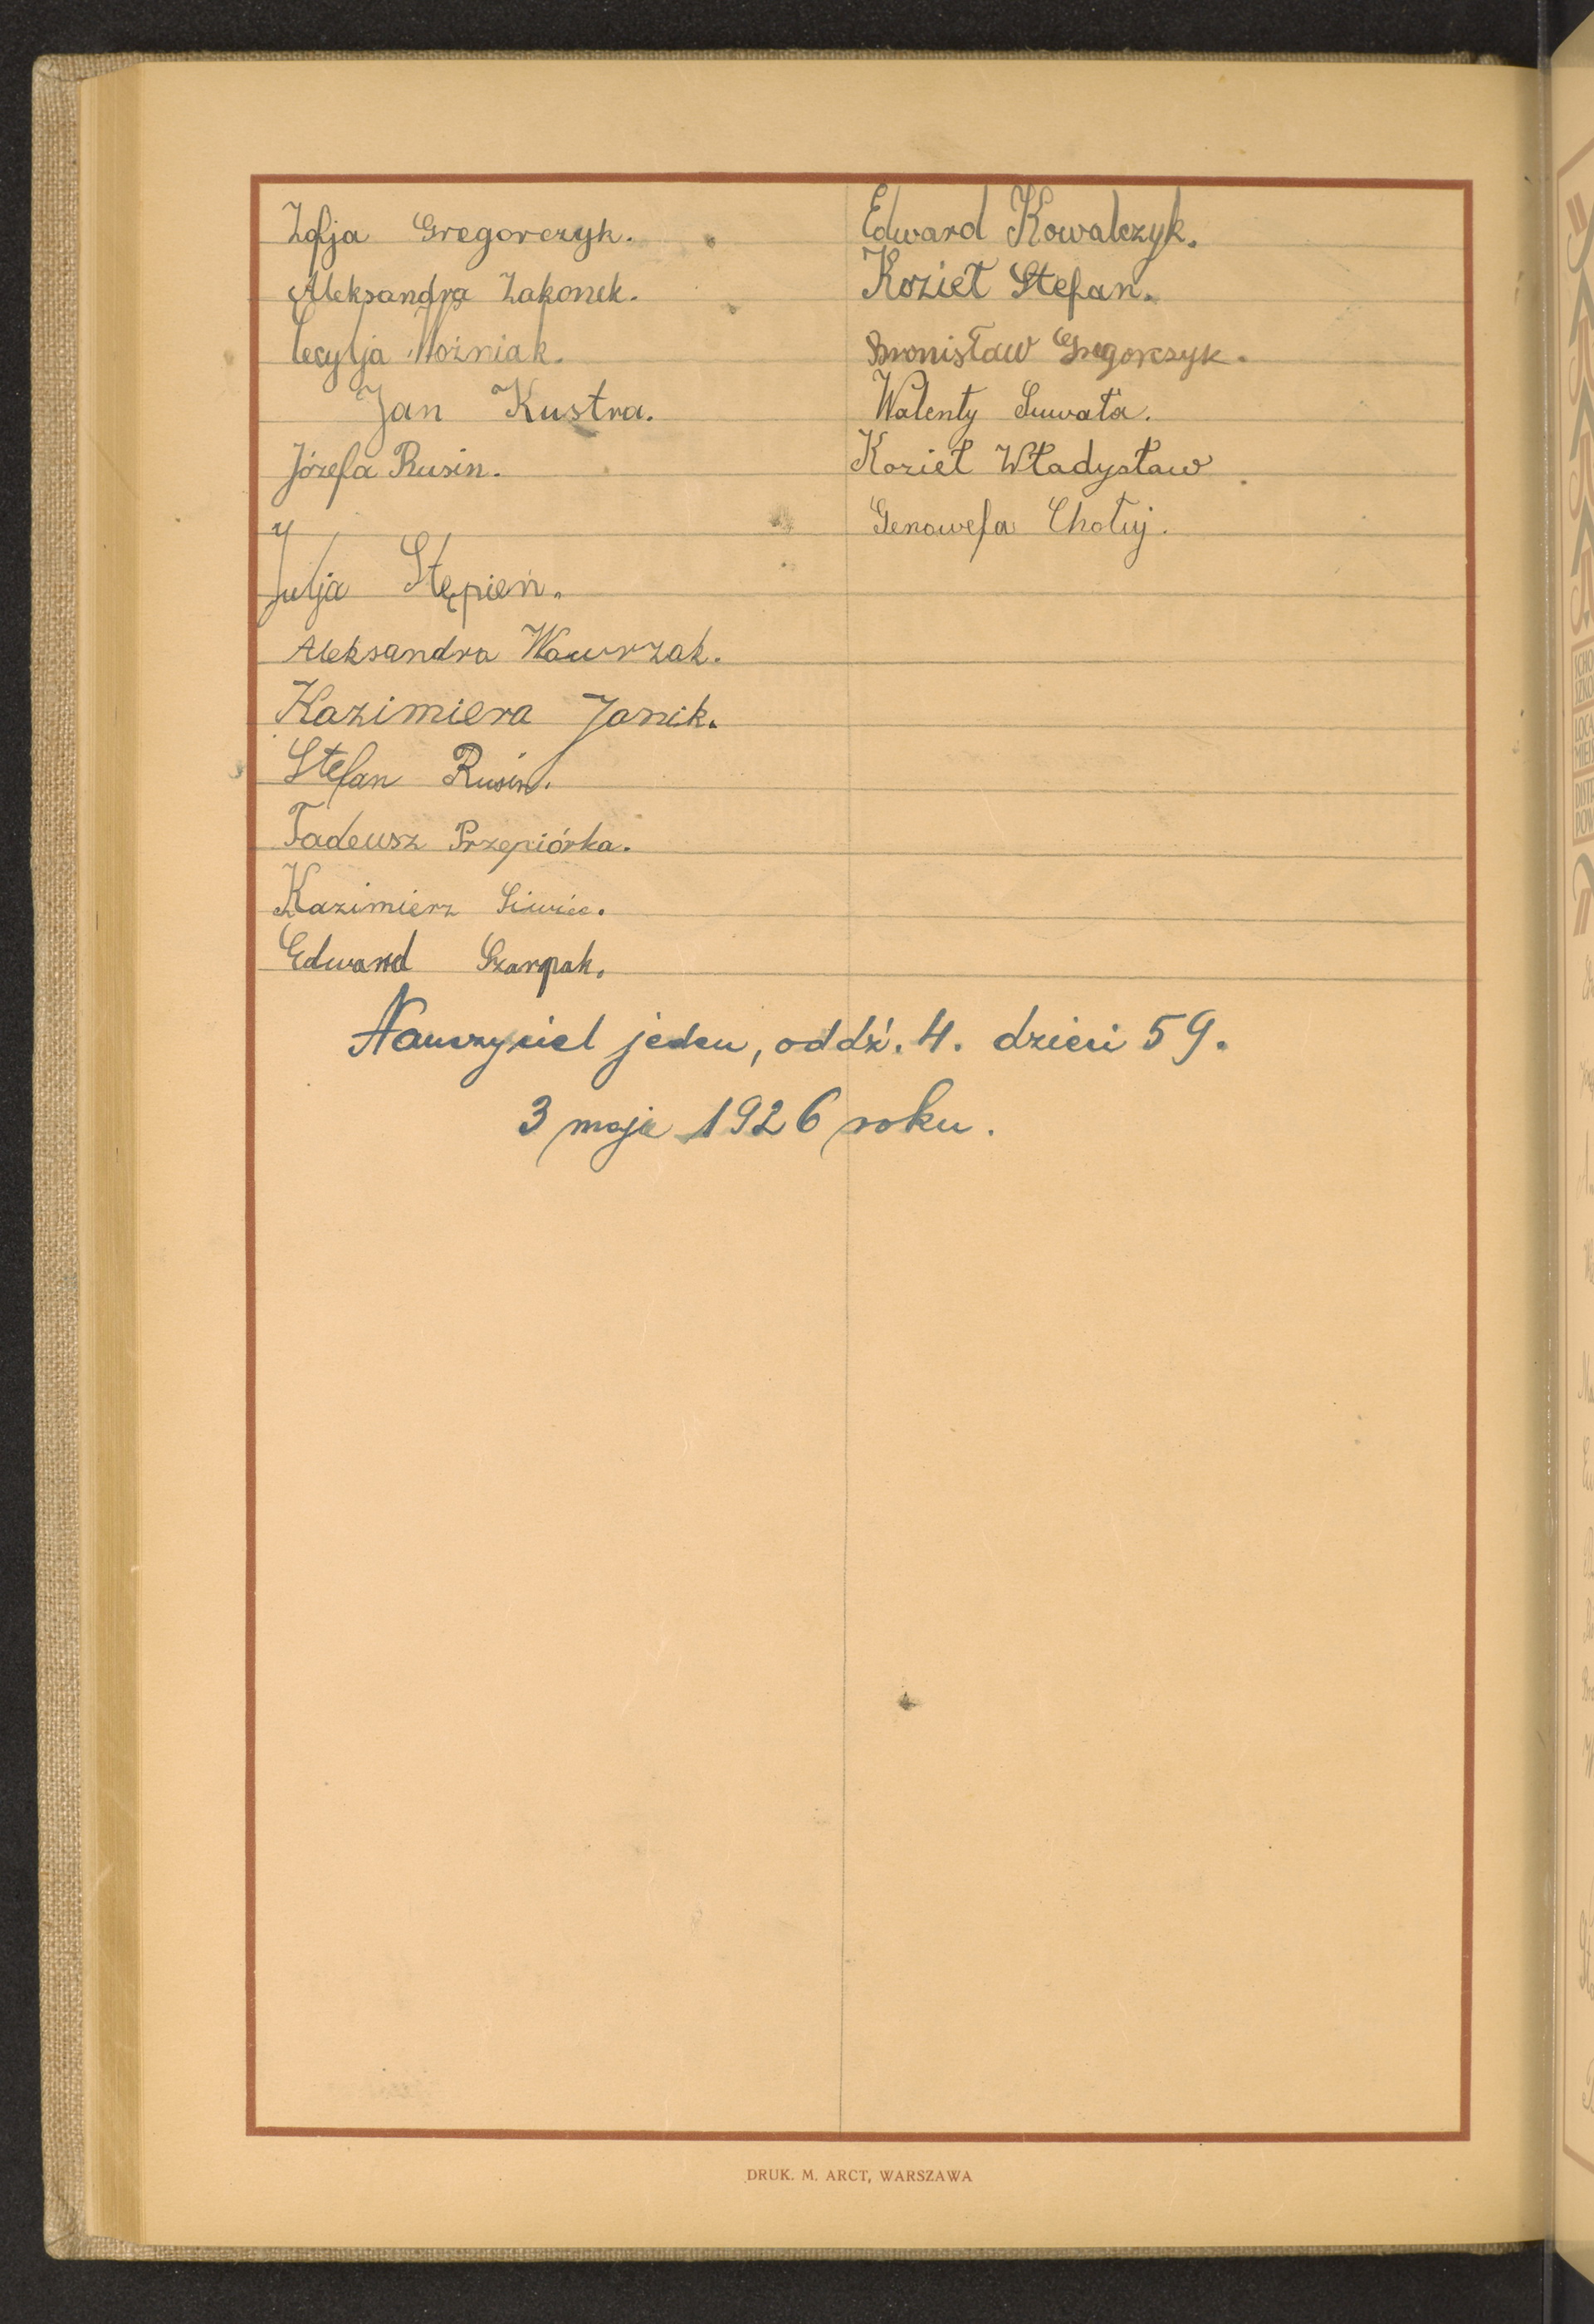 Zofja Gregorczyk.
Aleksandra Zakonek.
Cecylja Woźniak.
Jan Kustra.
Józefa Rusin.
Julja Stępień.
Aleksandra Wawrzak.
Kazimiera Janik.
Stefan Rusin.
Tadeusz Przepiórka.
Kazimierz Siwiec.
Edward Szarpak.
Edward Kowalczyk.
Kozieł Stefan.
Bronisław Gregorczyk.
Walenty Suwała.
Kozieł Władysław
Genowefa Chołuj.
Nauczyciel jeden, oddź. 4. dzieci 59.
3 maja 1926 roku.
DRUK. M. ARCT, WARSZAWA